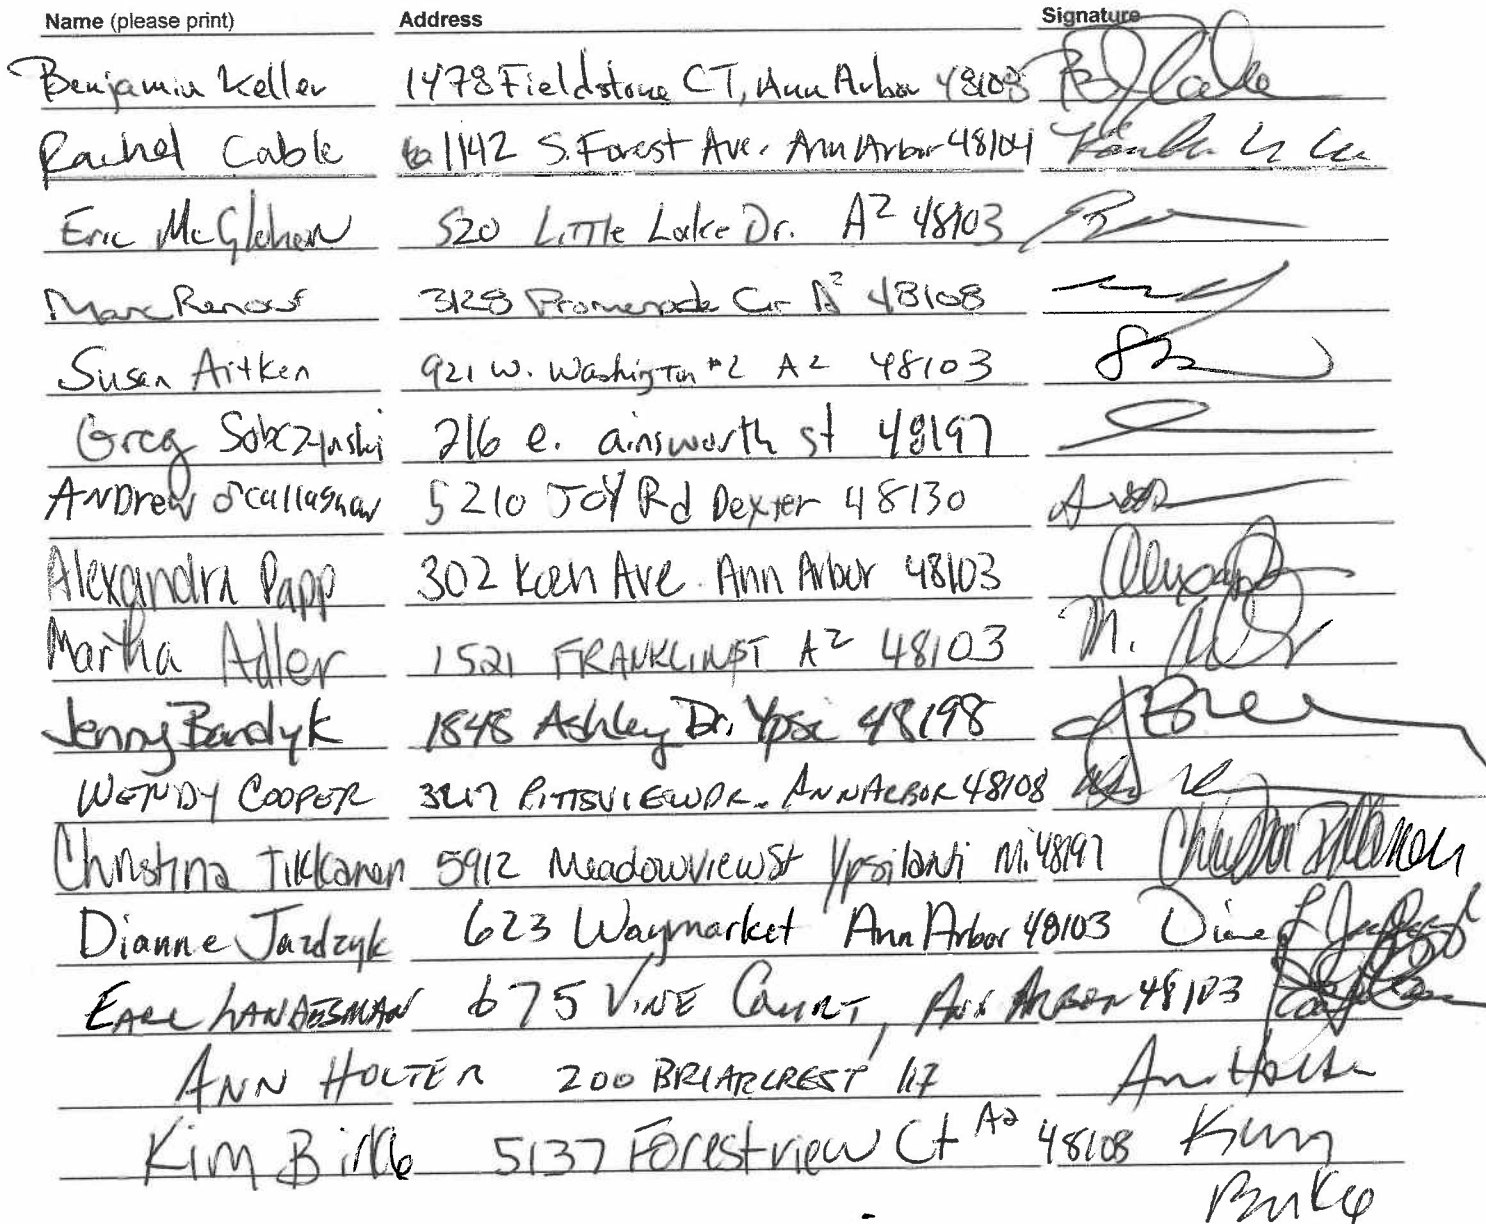 Name (please print) Address Signature
Benjamin Keller 1478 Fieldstone CT, Ann Arbor 48103
Rachel Cable 1142 S. Forest Ave. Ann Arbor 48104
Eric McGlohon 520 Little Lake Dr. A2 48103
Marc Renouf 3128 Promenade Cir A2 48108
Susan Aitken 921 W. Washington #2 A2 48103
Greg Sobczynski 216 e. ainsworth st 48197
ANDrew O'callaghan 5210 JOY Rd Dexter 48130
Alexandra Papp 302 Koch Ave. Ann Arbor 48103
Martha Adler 1521 FRANKLIN ST A2 48103 M.
Jenny Bardyk 1848 Ashley Dr. Ypsi 48198
WENDY COOPER PITTSVIEW DR. ANN ARBOR 48108
Christina Tikkanen 5912 Meadowview St Ypsilanti Mi 48197 Christina Tikkanen
Dianne Jazdzyk 623 Waymarket Ann Arbor 48103
EARL LANDESMAN 675 VINE COURT, ANN ARBOR 48103
ANN HOLTER 200 BRIARCREST 117 Ann Holter
Kim Birk 5137 Forestview Ct A2 48108 Kim